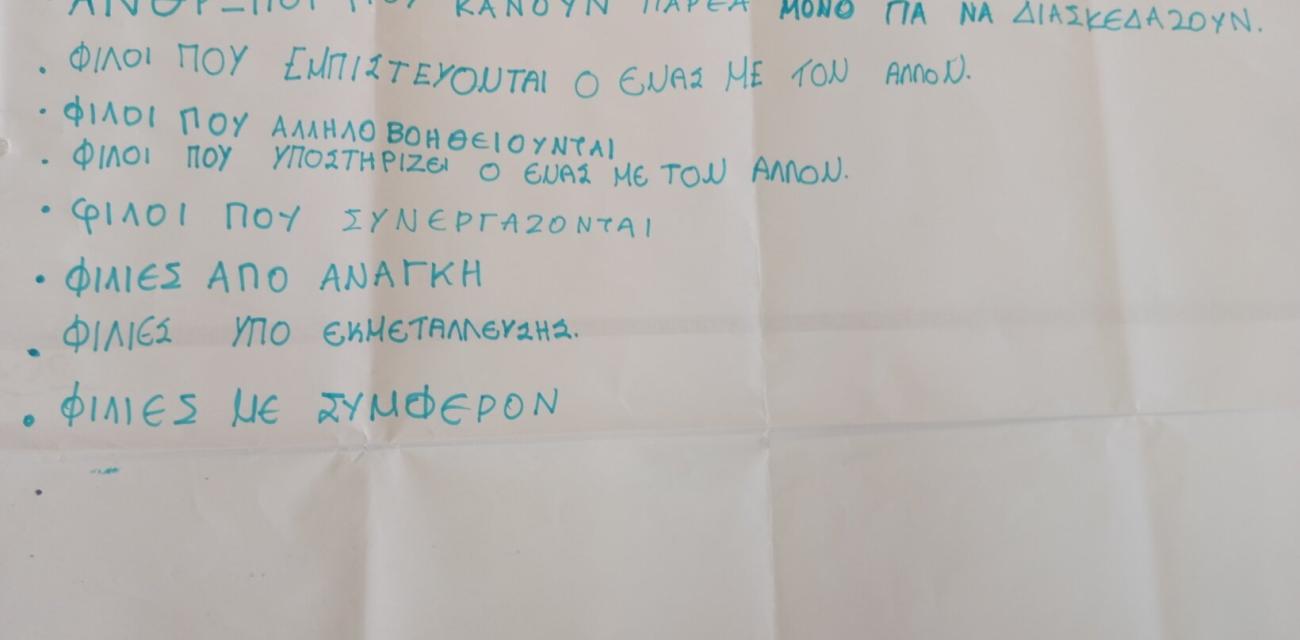 ΠΟΥ ΚΑΝΟΥΝ ΠΑΡΕΑ ΜΟΝΟ ΓΙΑ ΝΑ ΔΙΑΣΚΕΔΑΖΟΥΝ.
• ΦΙΛΟΙ ΠΟΥ ΕΜΠΙΣΤΕΥΟΝΤΑΙ Ο ΕΝΑΣ ΜΕ ΤΟΝ ΑΛΛΟΝ.
• ΦΙΛΟΙ ΠΟΥ ΑΛΛΗΛΟΒΟΗΘΕΙΟΥΝΤΑΙ
• ΦΙΛΟΙ ΠΟΥ ΥΠΟΣΤΗΡΙΖΕΙ Ο ΕΝΑΣ ΜΕ ΤΟΝ ΑΛΛΟΝ.
• ΦΙΛΟΙ ΠΟΥ ΣΥΝΕΡΓΑΖΟΝΤΑΙ
• ΦΙΛΙΕΣ ΑΠΟ ΑΝΑΓΚΗ
• ΦΙΛΙΕΣ ΥΠΟ ΕΚΜΕΤΑΛΛΕΥΣΗΣ.
• ΦΙΛΙΕΣ ΜΕ ΣΥΜΦΕΡΟΝ